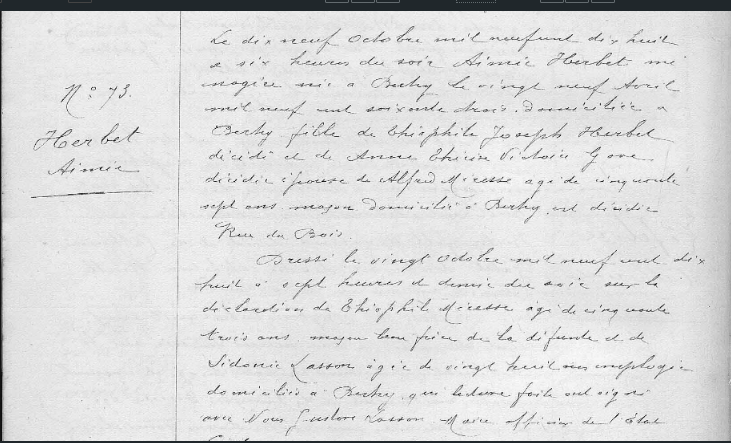 N° 73.
Herbet
Aimée
Le dix neuf Octobre mil neuf cent dix huit
a six heures du soir Aimée Herbet mé
nagère née a Buchy le vingt neuf Avril
mil neuf cent soixante trois domiciliée a
Buchy fille de Théophile Joseph Herbet
décédé et de Anne Thérèse Victoire
décédée épouse de Alfred agé de cinquante
sept ans maçon domicilié à Buchy est décédée
Rue du Bois.
Dressé le vingt Octobre mil neuf cent dix
huit à sept heures et demie du soir sur la
déclaration de Théophile agé de cinquante
trois ans maçon beau frère de la défunte et de
Sidonie Lasson agée de vingt huit ans employée
domiciliés à Buchy qui lecture faite ont signé
avec Nous Gustave Lasson Maire officier de l'Etat